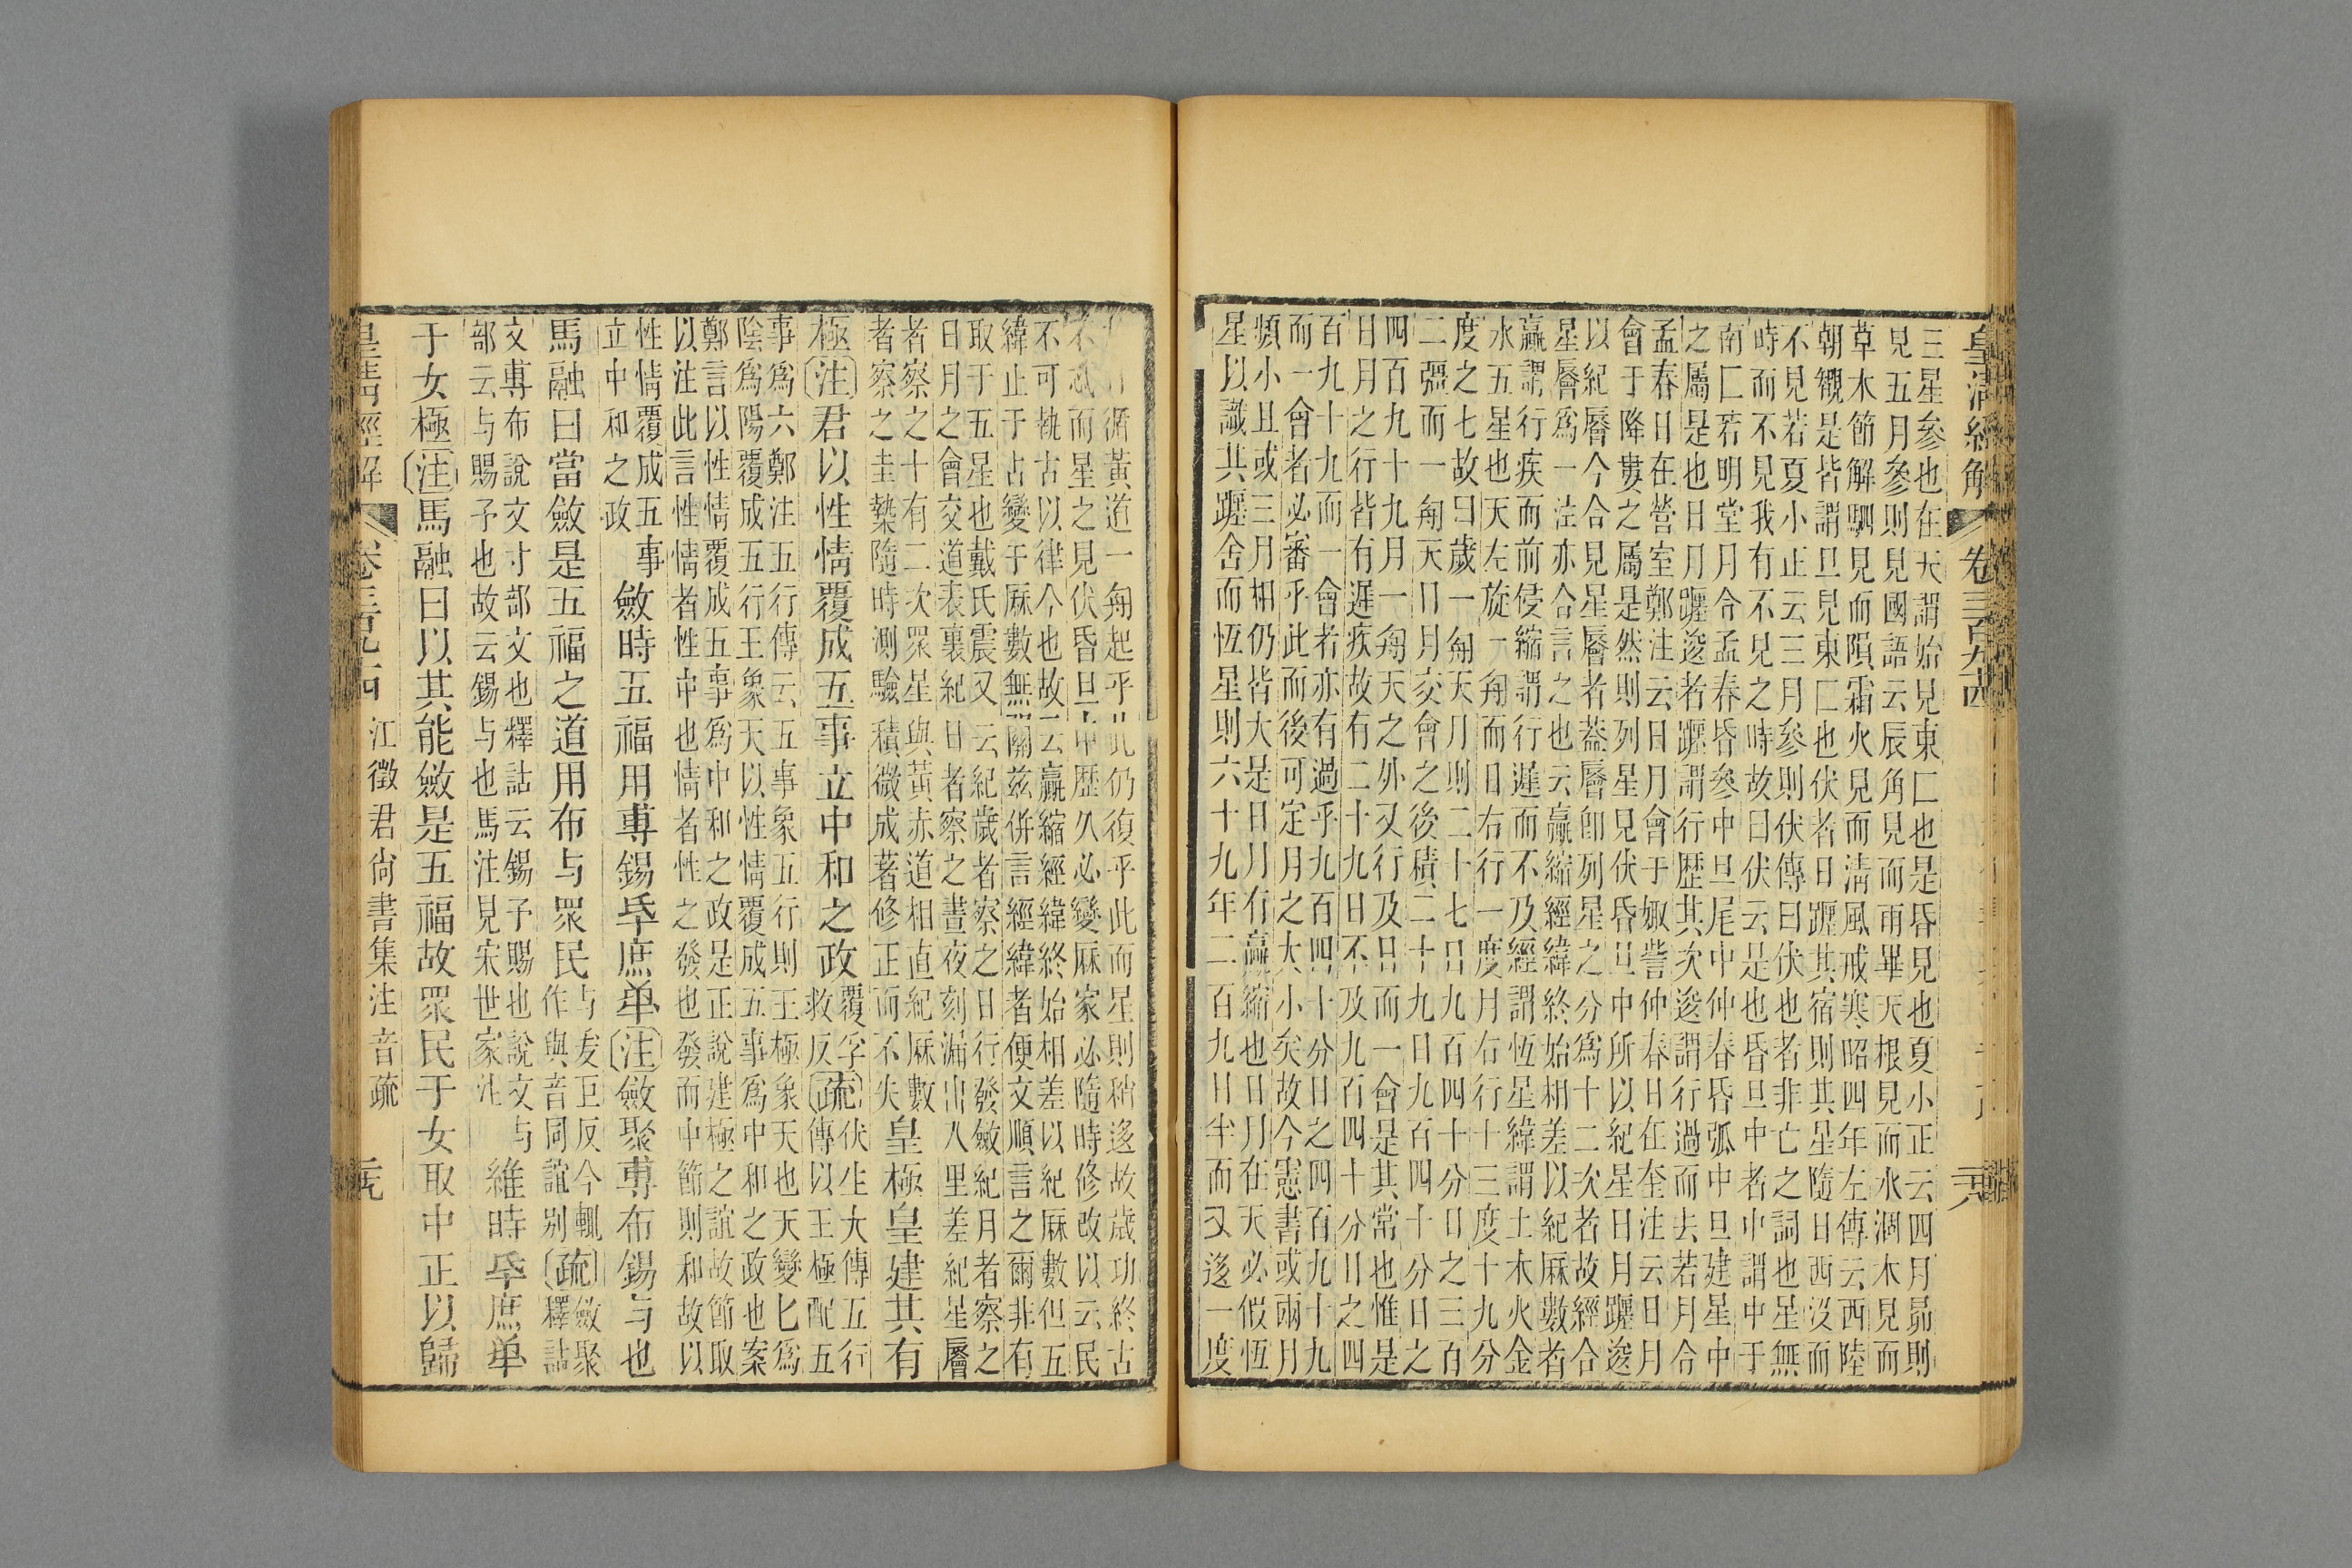 皇清經解 卷三百九十四
三星參也在天謂始見東匚也是昏見也夏小正云四月昴則
見五月參則見國語云辰角見而雨畢天根見而水涸木見而
草木節解駟見而隕霜火見而淸風戒寒昭四年左傳云西陸
朝覿是皆謂旦見東匚也伏者日躔其宿則其星隨日西沒而
不見若夏小正云三月參則伏傳曰伏也者非亡之詞也星無
時而不見我有不見之時故曰伏云是也昏旦中者中謂中于
南匚若明堂月令孟春昏參中旦尾中仲春昏弧中旦建星中
之屬是也日月躔逡者躔謂行歷其次逡謂行過而去若月合
孟春日在營室鄭注云日月會于娵訾仲春日在奎注云日月
會于降婁之屬是然則列星見伏昏旦中所以紀星日月躔逡
以紀曆今合見星曆者葢曆卽列星之分爲十二次者故經合
星曆爲一注亦合言之也云贏縮經緯終始相差以紀厤數者
贏謂行疾而前侵縮謂行遲而不及經謂恆星緯謂土木火金
水五星也天左旋一匊而日右行一度月右行十三度十九分
度之七故曰歲一匊天月則二十七日九百四十分日之三百
二彊而一匊天日月交會之後積二十九日九百四十分日之
四百九十九月一匊天之外又行及日而一會是其常也惟是
日月之行皆有遲疾故有二十九日不及九百四十分日之四
百九十九而一會者亦有過乎九百四十分日之四百九十九
而一會者必審乎此而後可定月之大小矣故今憲書或兩月
頻小且或三月相仍皆大是日月有贏縮也日月在天必假恆
星以識其躔舍而恆星則六十九年二百九日半而又逡一度
循黃道一匊起乎此仍復乎此而星則稍逡故歲功終古
不忒而星之見伏昏旦中歷久必變厤家必隨時修改以云民
不可執古以律今也故云贏縮經緯終始相差以紀厤數但五
緯止于占變于厤數無關茲併言經緯者便文順言之爾非有
取于五星也戴氏震又云紀歲者察之日行發斂紀月者察之
日月之會交道表裏紀日者察之晝夜刻漏出八里差紀星曆
者察之十有二次眾星與黃赤道相直紀厤數
者察之圭槷隨時測驗積微成著修正而不失
皇極皇建其有
極〔注〕君以性情覆成五事立中和之政
覆孚救反〔疏〕伏生大傳五行
傳以王極配五
事爲六鄭注五行傳云五事象五行則王極象天也天變匕爲
陰爲陽覆成五行王象天以性情覆成五事爲中和之政也案
鄭言以性情覆成五事爲中和之政是正說建極之誼故節取
以注此言性情者性中也情者性之發也發而中節則和故以
性情覆成五事
立中和之政
斂時五福用尃錫氒庶單〔注〕斂聚尃布錫与也
馬融曰當斂是五福之道用布与眾民
作與音同誼别〔疏〕釋詁
文尃布說文寸部文也釋詁云錫予賜也說文与
部云与賜予也故云錫与也馬注見宋世家注
維時氒庶單
于女極〔注〕馬融曰以其能斂是五福故眾民于女取中正以歸
皇淸經解 卷三百九十四 江徵君尙書集注音疏